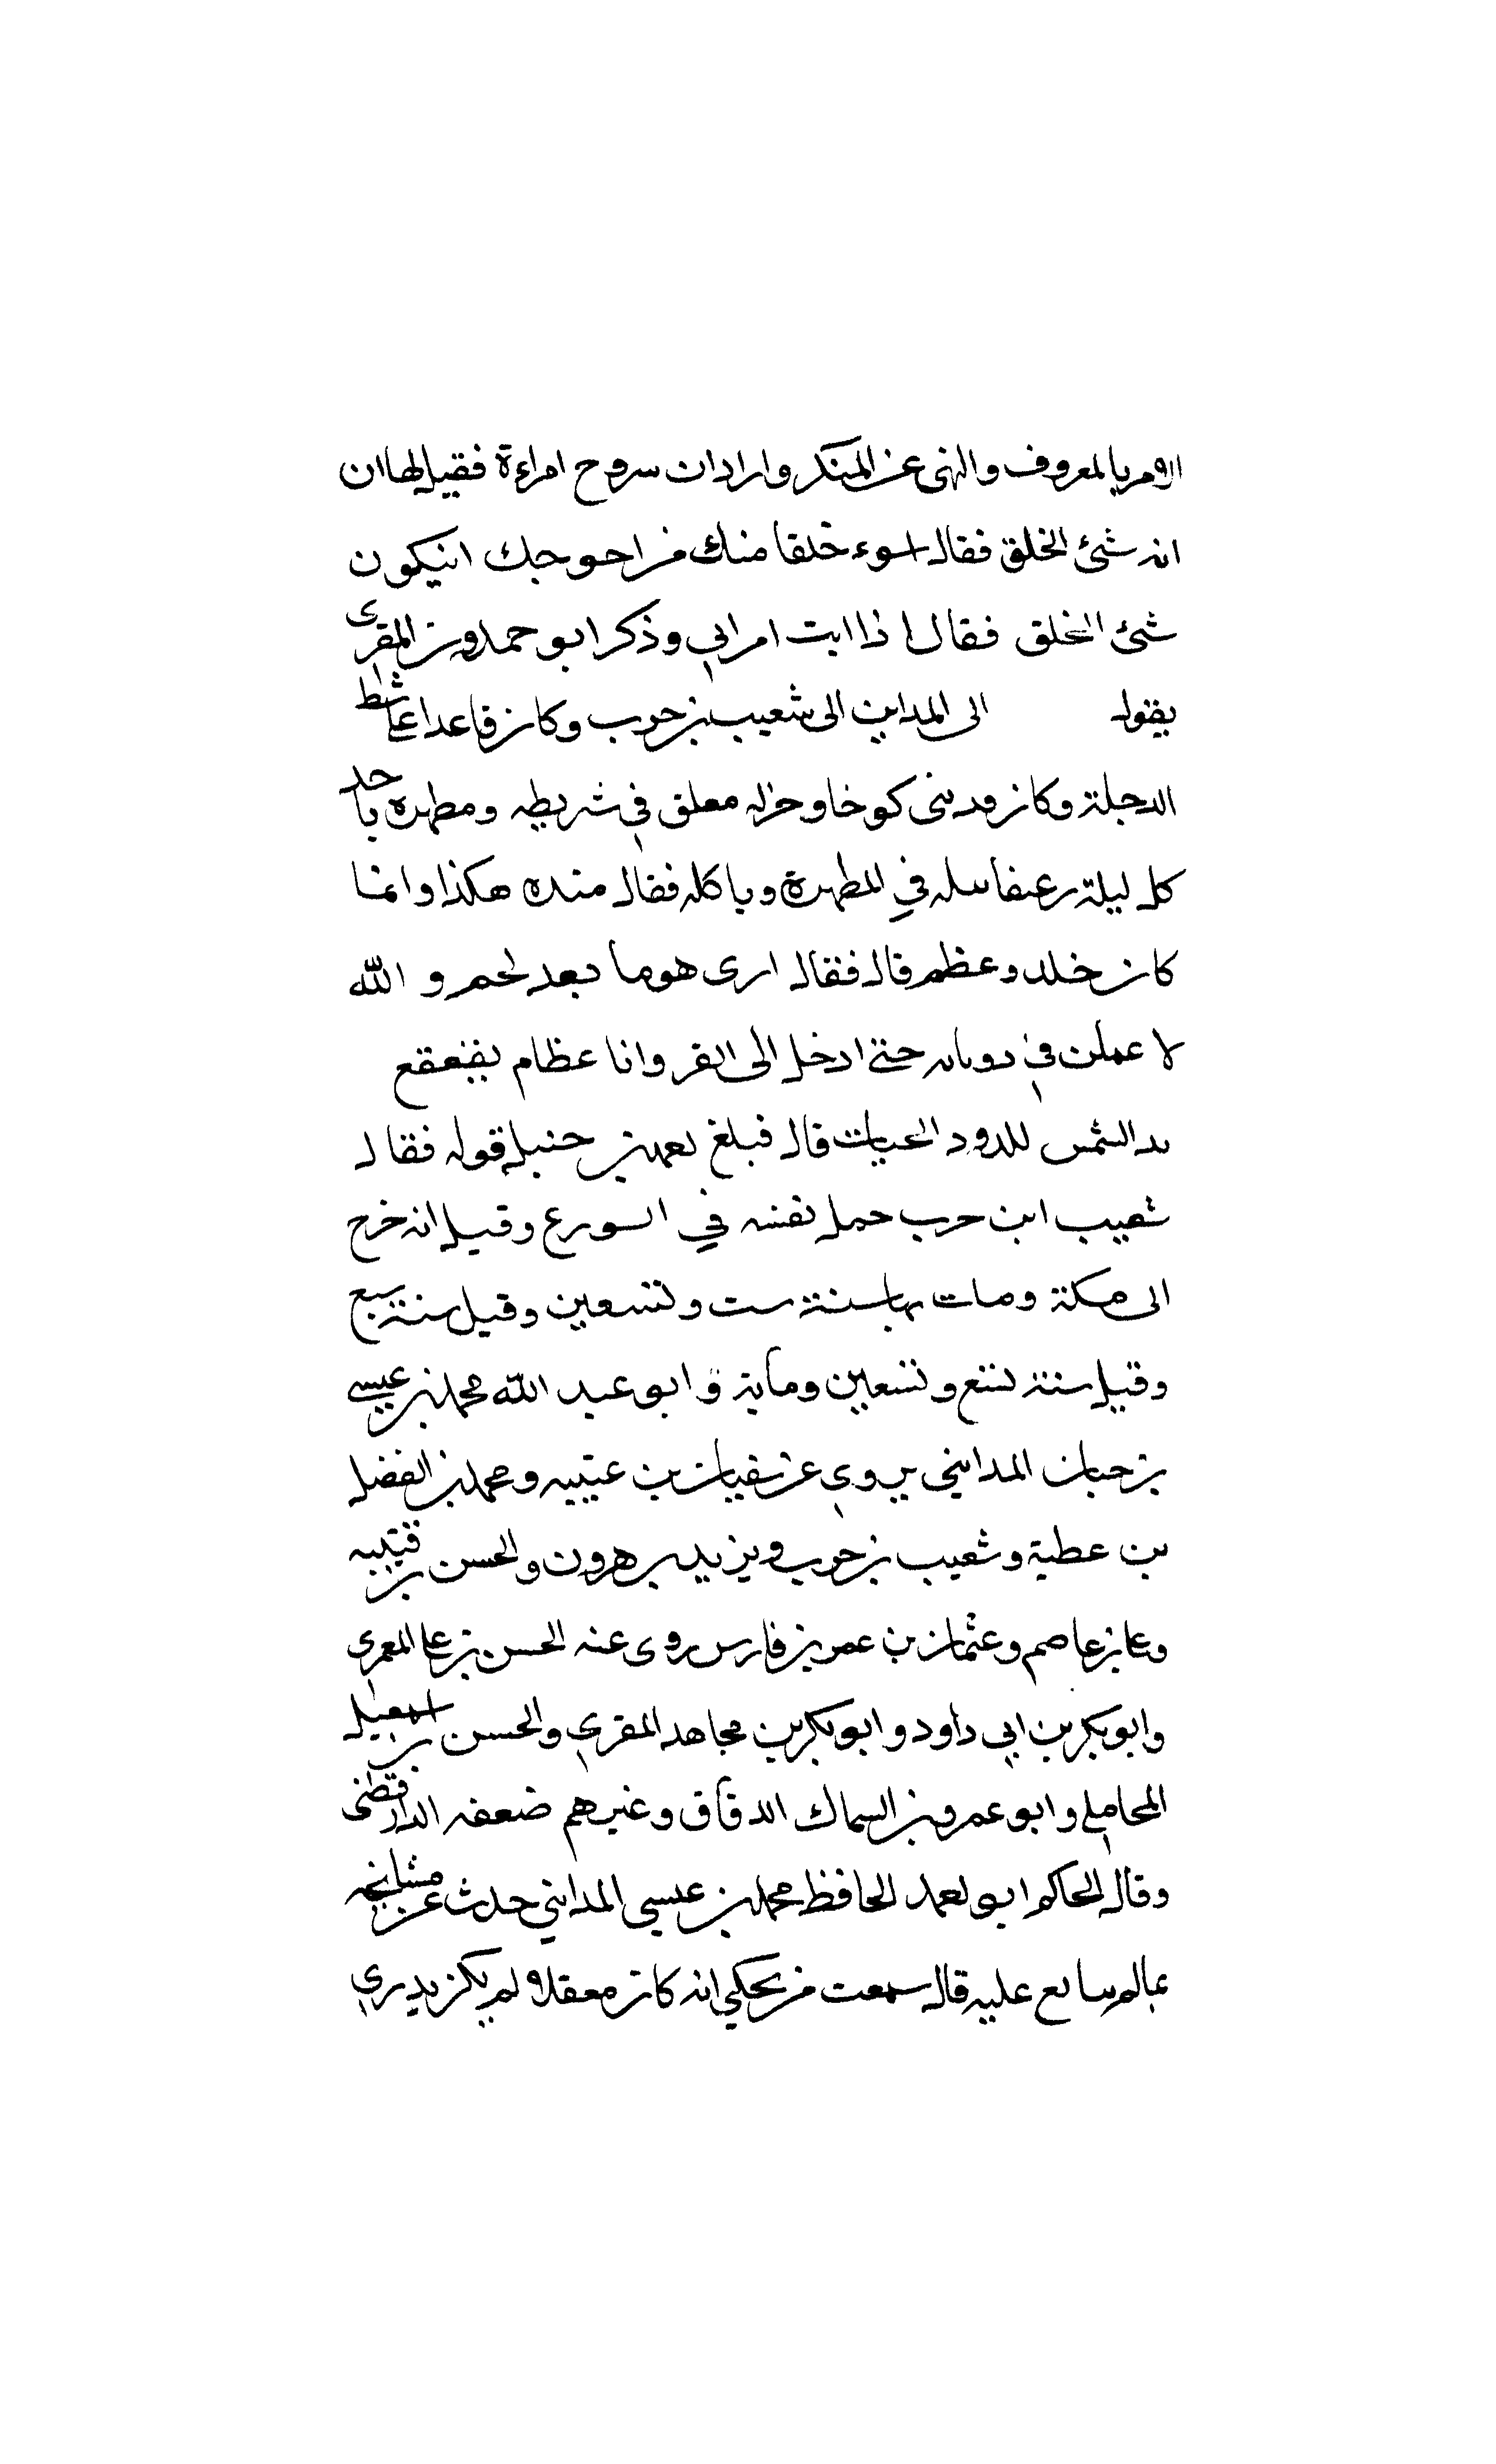 الامر بالمعروف والنهى عن المنكر واراد ان سروح امراءة فقيل لها ان
انه شئ الخلق فقال اسوء خلقا منك من احوجك ان يكون
شئ الخلق فقال اذا انت امراتي وذكر ابو حمدون المقرى
يقول الى المداين الى شعيب بن حرب وكان قاعدا على شط
الدجلة وكان قد بنى كوخا وخزله معلق في شريطه ومطهرة ياخد
كل ليلة رغيفا يبله في المطهرة وياكله فقال منده هكذا وانما
كان خلد وعظم قال فقال ارى هوما بعد لحم و الله
لا عملن في دوبانه حتى ادخل الى القبر وانا عظام يقنعقع
الشمس للدود الحيات قال فبلغ لعمد بن حنبل قوله فقال
شعيب ابن حرب حمل نفسه في الورع وقيل انه خرج
الى مكة ومات بها سنة ست وتسعين وقيل سنة سبع
وقيل سنة تسع وتسعين ومأية و ابو عبد الله محمد بن عيسى
بن حيان المدايني يروي عن سفيان بن عيينه ومحمد بن الفضل
بن عطية وشعيب بن حرب ويزيد بن هرون والحسن بن قتيبه
وعلى بن عاصم وعثمان بن عمر بن فارس روى عنه الحسن بن على المعمري
وابو بكر بن ابي داود وابو بكر بن مجاهد المقري والحسن بن اسمعيل
المحاملي وابو عمرو بن السماك الدقاق وغيرهم ضعفه الدارقطني
وقال الحاكم ابو لعمد الحافظ محمد بن عيسى المدايني حدث عن مشايخه
بمالم يتابع عليه قال سمعت من يحكي انه كان معقلا لم يكن يدري